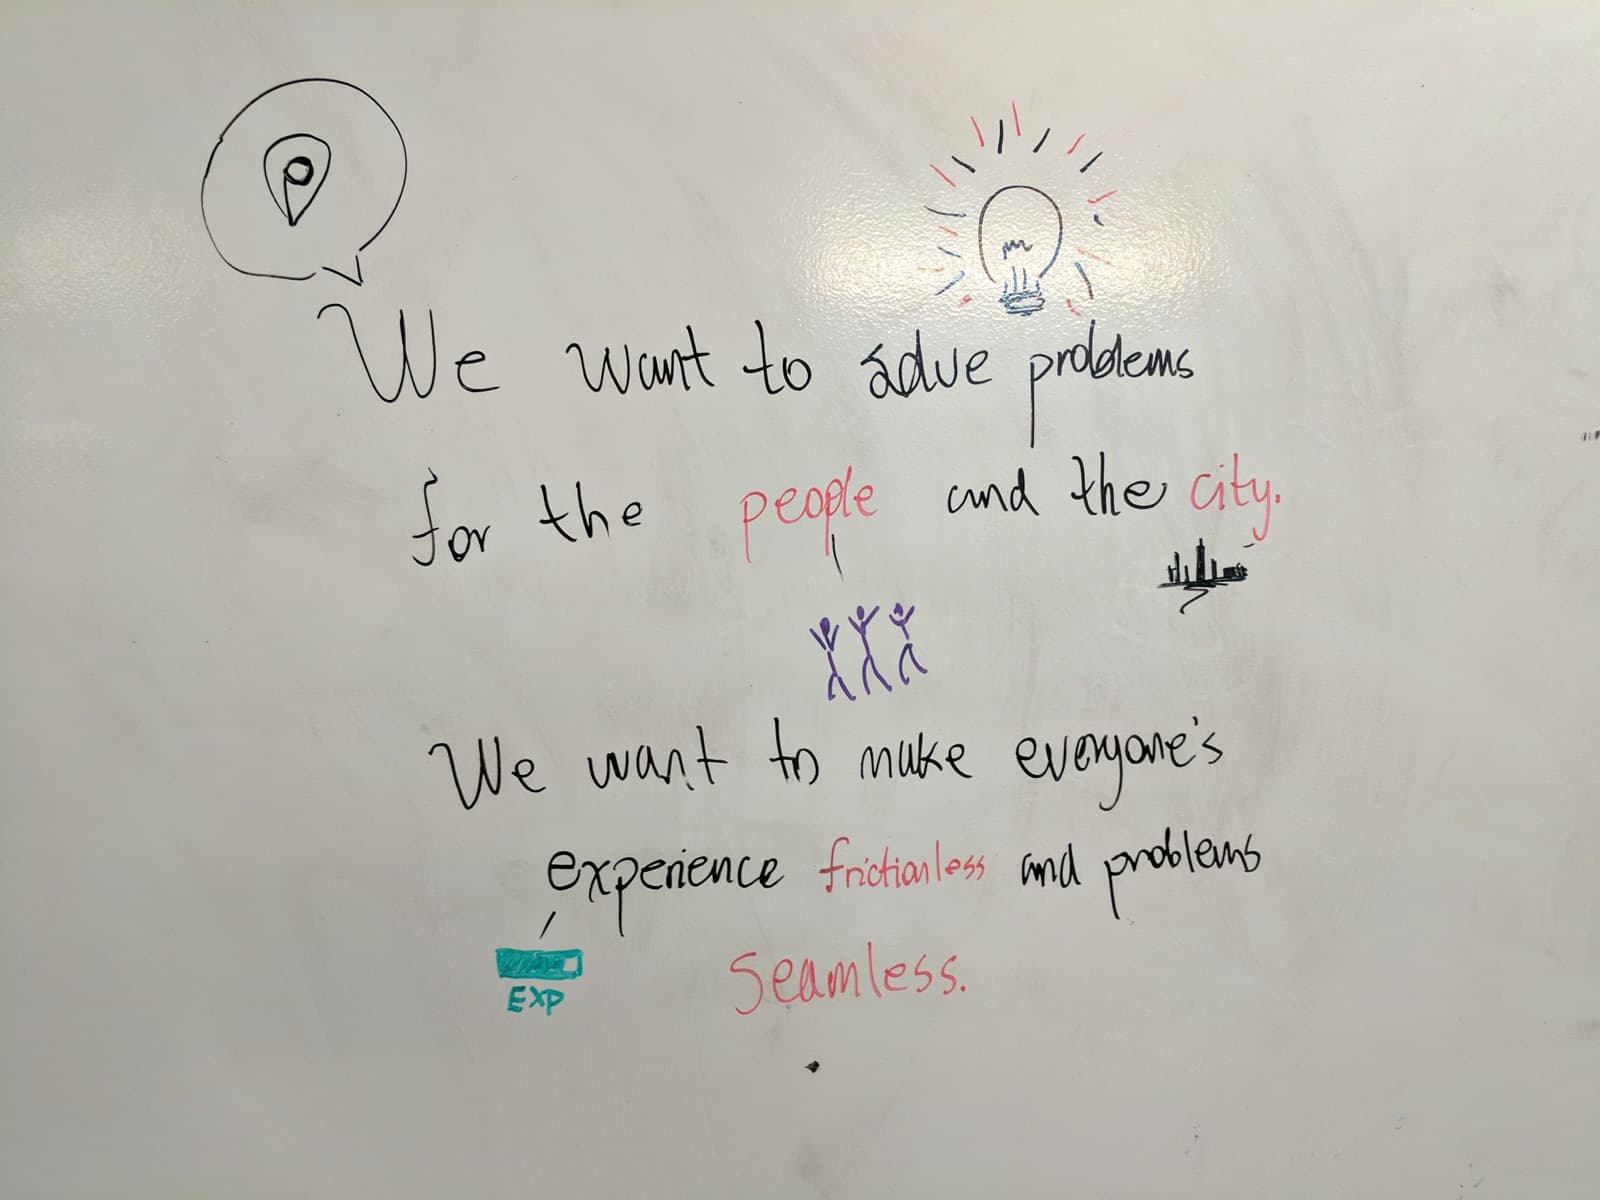 P
We want to solve problems
for the people and the city.
We want to make everyone's
experience frictionless and problems
EXP
Seamless.